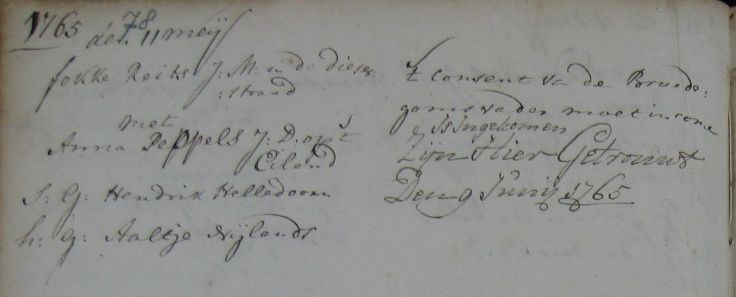 1765
78
den 11 meij
fokke Reits J: M: in de dieser
: straad
met
Anna Peppels J: D: op 't
Eiland
S: G: Hendrik Helledoorn
h: G: Aaltje Nijlands
't Consent va de Bruide:
goms vader moet income
Is Ingekomen
Zijn Hier Getrouwt
Den 9 Junij 1765